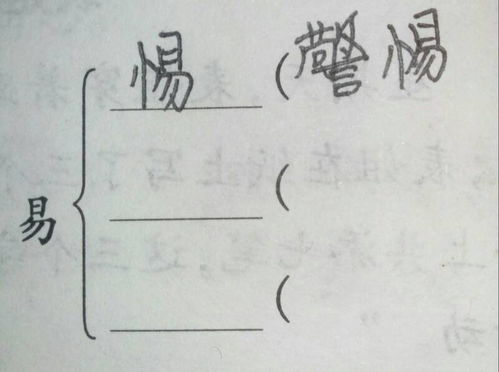 惕 (警惕
易 (
(